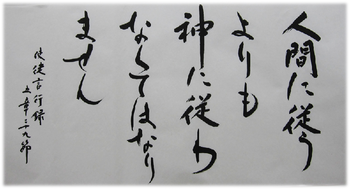 人間に従う
よりも
神に従わ
なくてはなり
ません
使徒言行録
五章二九節